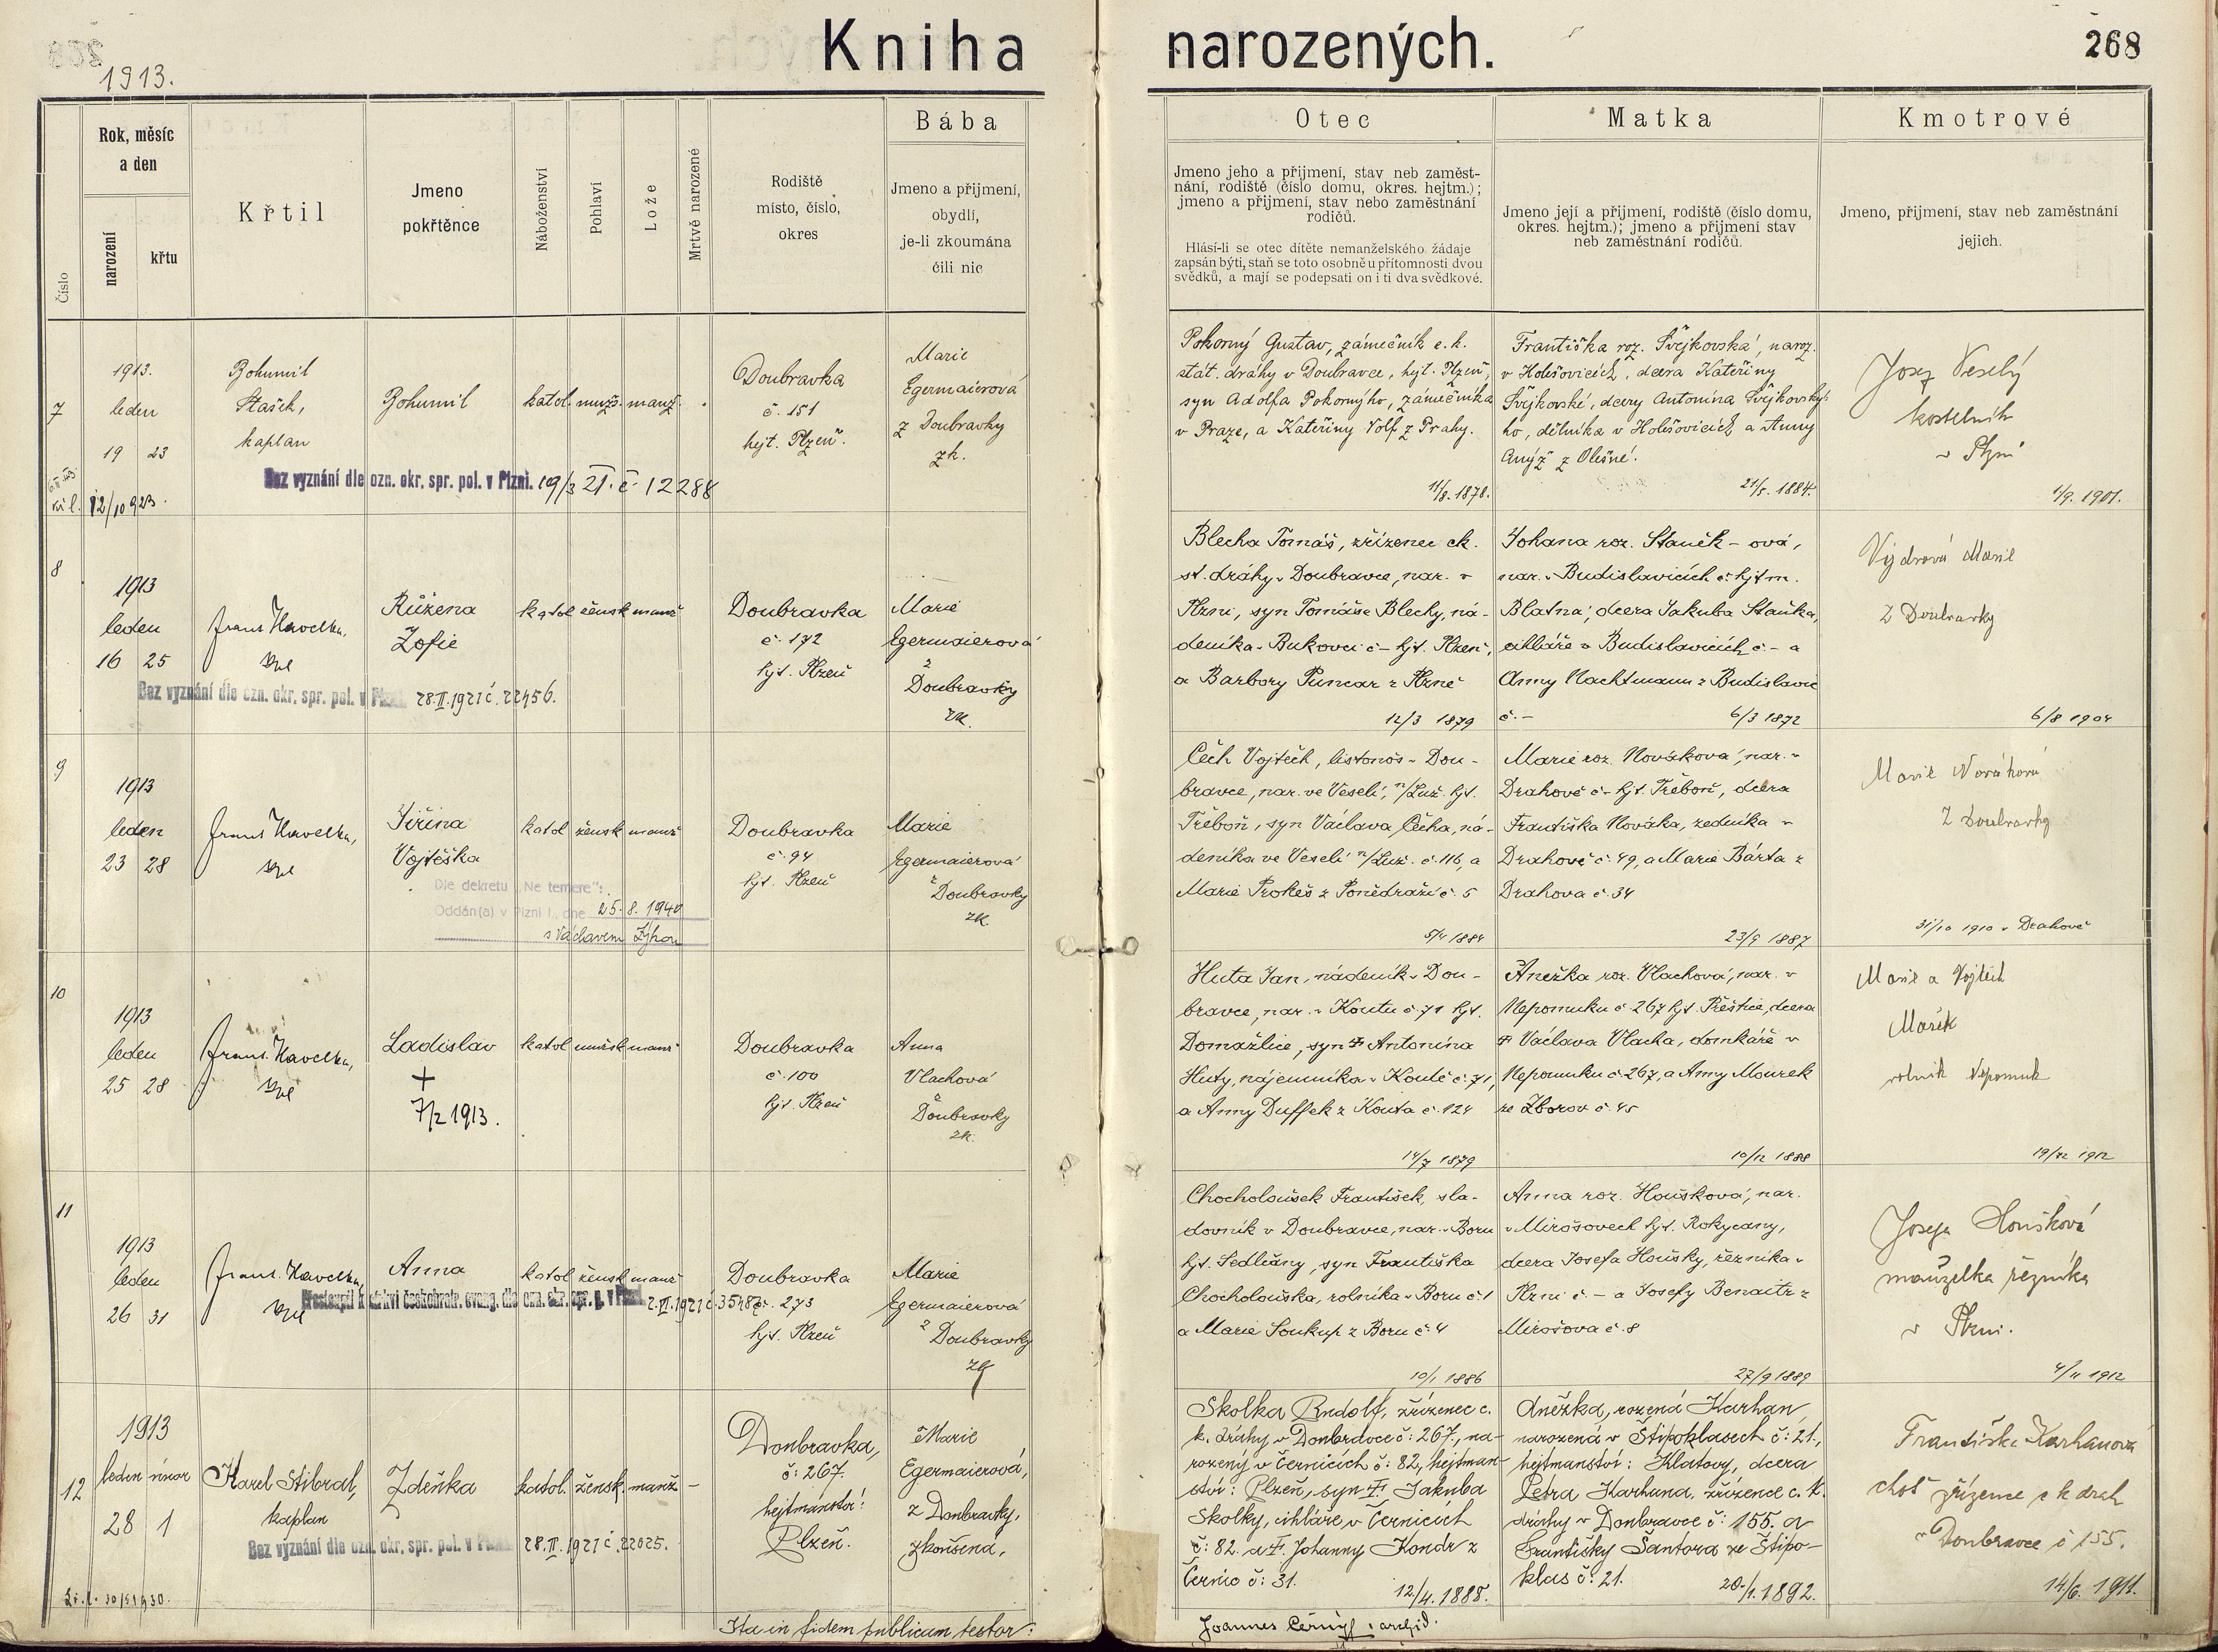 Kniha narozených.
268
1913.
Číslo
Rok, měsíc
a den
narození
křtu
Křtil
Jmeno
pokřtěnce
Náboženství
Pohlaví
Lože
Mrtvě narozené
Rodiště
místo, číslo,
okres
Bába
Jmeno a přijmení,
obydlí,
je-li zkoumána
čili nic
Otec
Jmeno jeho a přijmení, stav neb zaměst-
nání, rodiště (číslo domu, okres. hejtm.);
jmeno a přijmení, stav nebo zaměstnání
rodičů.
Hlásí-li se otec dítěte nemanželského žádaje
zapsán býti, staň se toto osobně u přítomnosti dvou
svědků, a mají se podepsati on i ti dva svědkové.
Matka
Jmeno její a přijmení, rodiště (číslo domu,
okres. hejtm.); jmeno a přijmení stav
neb zaměstnání rodičů.
Kmotrové
Jmeno, přijmení, stav neb zaměstnání
jejich.
7
1913.
leden
19 23
Bohumil
Stašek,
kaplan
Bohumil
katol. mužs. manž.
Doubravka
č. 151
hejt. Plzeň.
Marie
Egermaierová
z Doubravky
zk.
Bez vyznání dle ozn. okr. spr. pol. v Plzni. 19/3 21. č 12288
12/10 923.
Pokorný Gustav, zámečník c. k.
stát. dráhy v Doubravce, hejt. Plzeň,
syn Adolfa Pokorného, zámečníka
v Praze, a Kateřiny Volf z Prahy.
11/8. 1878.
Františka roz. Švejkovská, naroz.
v Holešovicích, dcera Kateřiny
Švejkovské, dcery Antonína Švejkovské-
ho, dělníka v Holešovicích a Anny
Anýž z Olešné.
21/5. 1884.
Josef Veselý
kostelník
v Plzni
1/9. 1901.
8
1913
leden
16 25
Frant. Havelka,
Růžena
Zofie
katol žensk manž
Doubravka
č. 172
hjt. Plzeň
Marie
Egermaierová
z
Doubravky
zk.
Bez vyznání dle ozn. okr. spr. pol. v Plzni. 28.II.1921 č. 22456.
Blecha Tomáš, zřízenec ck.
st. dráhy v Doubravce, nar. v
Plzni, syn Tomáše Blechy, ná-
deníka v Bukovci č – hjt. Plzeň,
a Barbory Puncar z Plzně
12/3 1879
Johana roz. Staněk – ová,
nar. v Budislavicích č. hjtm.
Blatna, dcera Jakuba Staňka,
cihláře v Budislavicích č. – a
Anny Nachtmann z Budislavic
č. –
6/3 1872
Vydrová Marie
z Doubravky
6/8 1904
9
1913
leden
23 28
Frant. Havelka,
Jiřina
Vojtěška
katol žensk manž
Doubravka
č. 94
hjt. Plzeň
Marie
Egermaierová
z
Doubravky
zk.
Dle dekretu „Ne temere":
Oddán(a) v Plzni I., dne 25. 8. 1940
s Václavem
Čech Vojtěch, listonoš v Dou-
bravce, nar. ve Veselí, n/Luž. hjt.
Třeboň, syn Václava Čecha, ná-
deníka ve Veselí n/Luž. č. 116, a
Marie Prokeš z Ponědraži č. 5
5/4 1884
Marie roz. Nováková, nar. v
Drahově č – hjt. Třeboň, dcera
Františka Nováka, zedníka v
Drahově č. 49, a Marie Bárta z
Drahova č. 34
23/9 1887
Marie Nováková
z Doubravky
31/10 1910 v Drahově
10
1913
leden
25 28
Frant. Havelka,
Ladislav
+
7/2 1913.
katol mužsk manž
Doubravka
č. 100
hjt. Plzeň
Anna
Vlachová
z
Doubravky
zk.
Huta Jan, nádeník v Dou-
bravce, nar. v Koutu č. 71 hjt.
Domažlice, syn † Antonína
Huty, nájemníka v Koutě č. 71,
a Anny Duffek z Kouta č. 124
14/7 1879
Anežka roz. Vlachová, nar. v
Nepomuku č 267 hjt. Přeštice, dcera
† Václava Vlacha, domkáře v
Nepomuku č. 267, a Anny Mourek
ze Zborov č. 45
10/12 1888
Marie a Vojtěch
Mařík
rolník Nepomuk
19/11 1912
11
1913
leden
26 31
Frant. Havelka,
Anna
katol žensk manž
Doubravka
č. 273
hjt. Plzeň
Marie
Egermaierová
z
Doubravky
zk
Přestoupil k církvi českobratr. evang. dle ozn. okr. spr. p. v Plzni 2.VI.1921 č. 35487
Chocholoušek František, sla-
dovník v Doubravce, nar. v Boru
hjt. Sedlčany, syn Františka
Chocholouška, rolníka v Boru č. 1
a Marie Soukup z Boru č. 4
10/1 1886
Anna roz. Houšková, nar.
v Mirošovech hjt. Rokycany,
dcera Josefa Houšky, řezníka v
Plzni č – a Josefy Benaitr z
Mirošova č. 8
27/9 1889
Josefa Houšková
manželka řezníka
v Plzni.
4/11 1912
12
1913
leden únor
28 1
Karel Stibral,
kaplan
Zdeňka
katol. žensk. manž –
Doubravka,
č: 267.
hejtmanství:
Plzeň.
Marie
Egermaierová,
z Doubravky,
zkoušená.
Bez vyznání dle ozn. okr. spr. pol. v Plzni 28.II.1921 č. 22025.
30/5 1930.
Skolka Rudolf, zřízenec c.
k. dráhy v Doubravce č: 267., na-
rozený v Černicích č: 82, hejtman-
ství: Plzeň, syn †. Jakuba
Skolky, cihláře, v Černicích
č: 82. a †. Johanny Kondr z
Černic č: 31.
12/4. 1888.
Anežka, rozená Karhan
narozená v Štipoklasech č: 21.,
hejtmanství: Klatovy, dcera
Petra Karhana, zřízence c. k.
dráhy v Doubravce č: 155. a
Františky Šantora ze Štipo-
klas č. 21.
20/1. 1892.
Františka Karhanová
choť zřízence c k drah
v Doubravce č 155.
14/6. 1911.
Ita in fidem publicam testor:
Joannes Černý, archid.